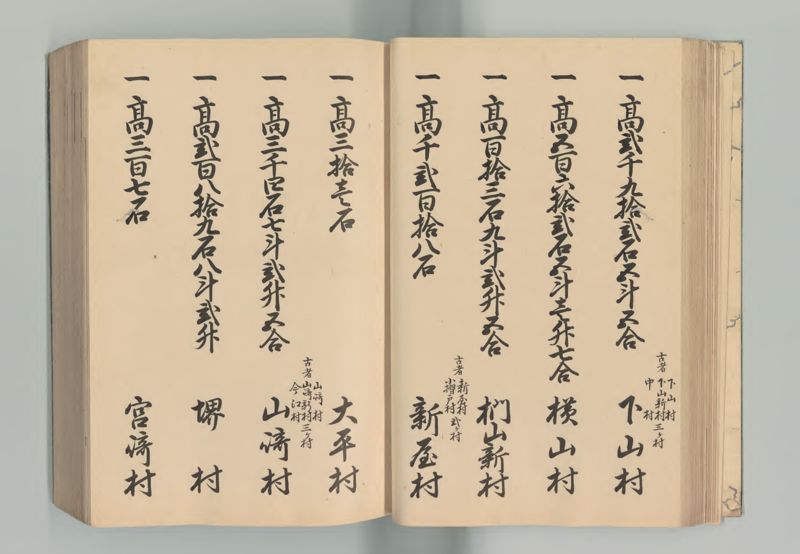 一 高弐千九拾弐石五斗五合
古者 下山村 下山新村 中村 三ケ村
下山村
一 高五百六拾弐石五斗壱升七合
横山村
一 高百拾三石九斗弐升五合
椚山新村
一 高千弐百拾八石
古者 新屋村 小摺戸村 弐ケ村
新屋村
一 高三拾壱石
大平村
一 高三千四石七斗弐升五合
古者 山崎村 山崎新村 今江村 三ケ村
山崎村
一 高弐百八拾九石八斗弐升
堺村
一 高三百七石
宮崎村